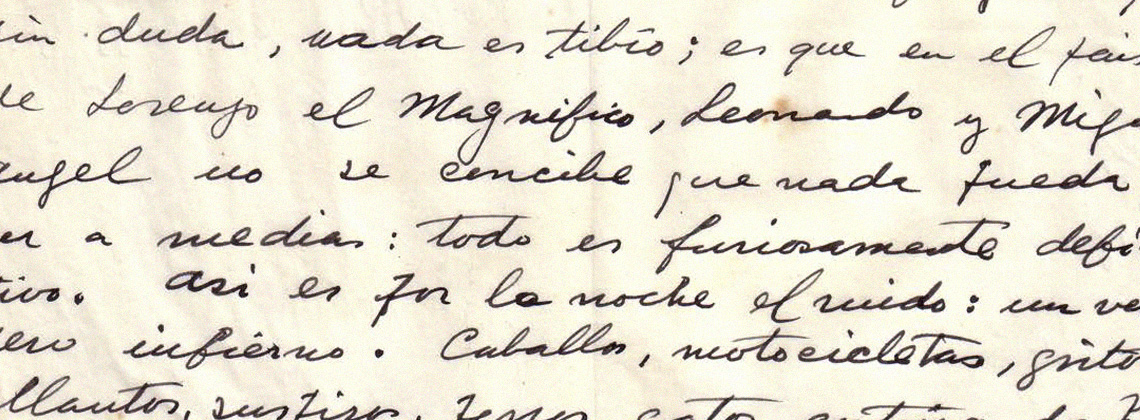 sin duda, nada es tibio; es que en el país
de Lorenzo el Magnifico, Leonardo y Migu
angel no se concibe que nada pueda
ser a medias: todo es furiosamente defi
tivo. Asi es por la noche el ruido: un ve
dero infierno. Caballos, motocicletas, grito
llantos, suspiros, perros, gatos